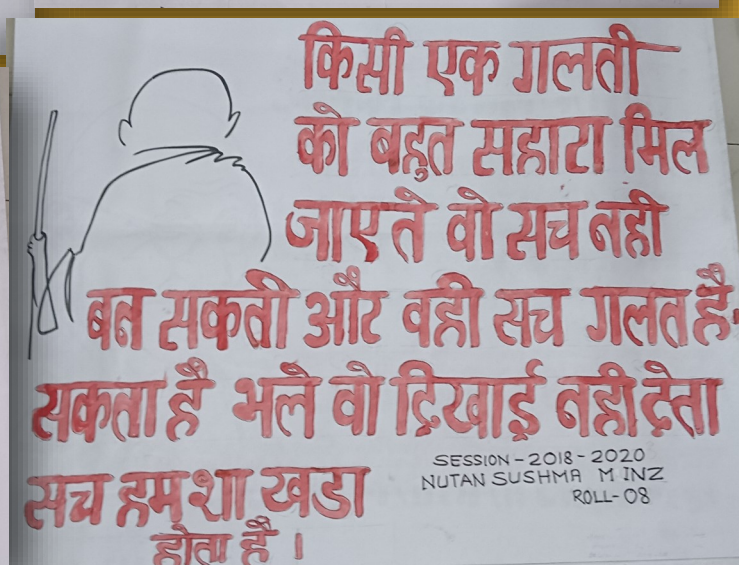 किसी एक गलती
को बहुत सहारा मिल
जाए ते वो सच नही
बन सकती और वही सच गलत है.
सकता है भले वो दिखाई नही देता
सच हमशा खडा
होता है ।
SESSION - 2018 - 2020
NUTAN SUSHMA MINZ
ROLL - 08